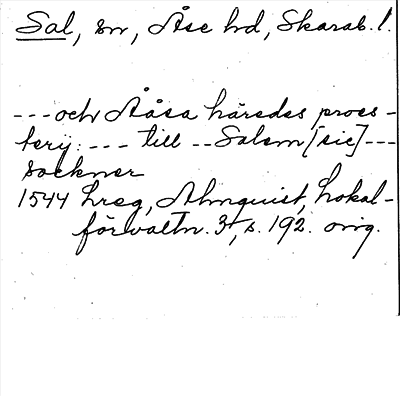 Sal, sn, Åse hd, Skarab. l.
---och Aåsa häredes proes-
terij: --- till -- Salem [sic]---
sockner
1544 Lreg, Almquist, Lokal-
förvaltn. 3, s. 192. orig.